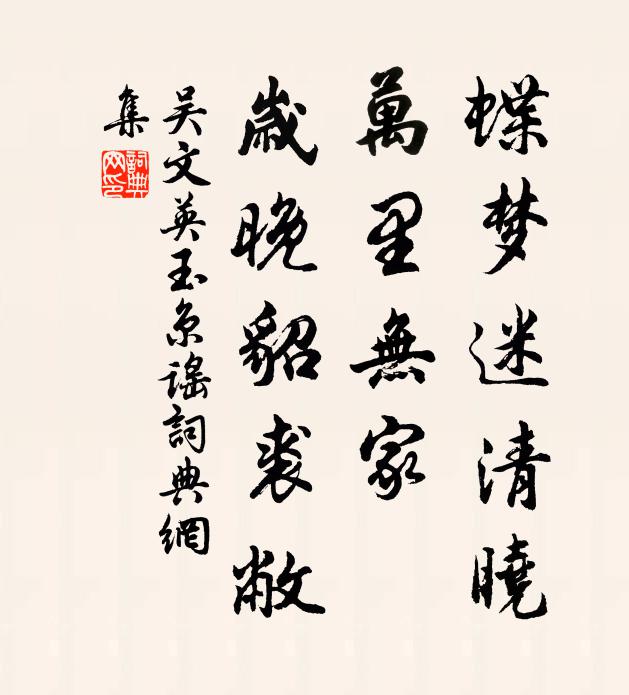 蝶梦迷清曉
萬里無家
歲晚貂裘敝
吴文英玉京謠詞典網
集
詞典
网印